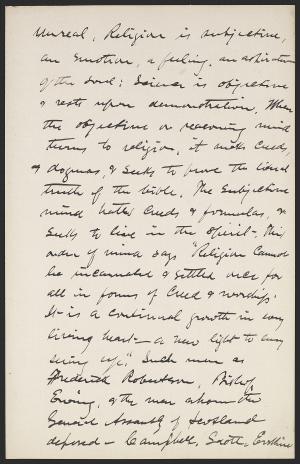 Unreal, Religion is subjective,
an emotion, a feeling, an aspiration
of the soul; Science is objective
& rests upon demonstration. When
the objective or reasoning mind
turns to religion, it seeks creeds,
& dogmas, & seeks to prove the literal
truth of the bible. The subjective
mind hates creeds & formulas, &
seeks to live in the spirit - this
order of mind says "Religion cannot
be incarnated & settled once for
all in forms of creed & worship.
It is a continual growth in every
living heart — a new light to every
seeing eye." Such men as
Frederick Robertson, Bishop
Ewing, & the men whom the
General Assembly of Scotland
deposed — Campbell, Scott, Erskine